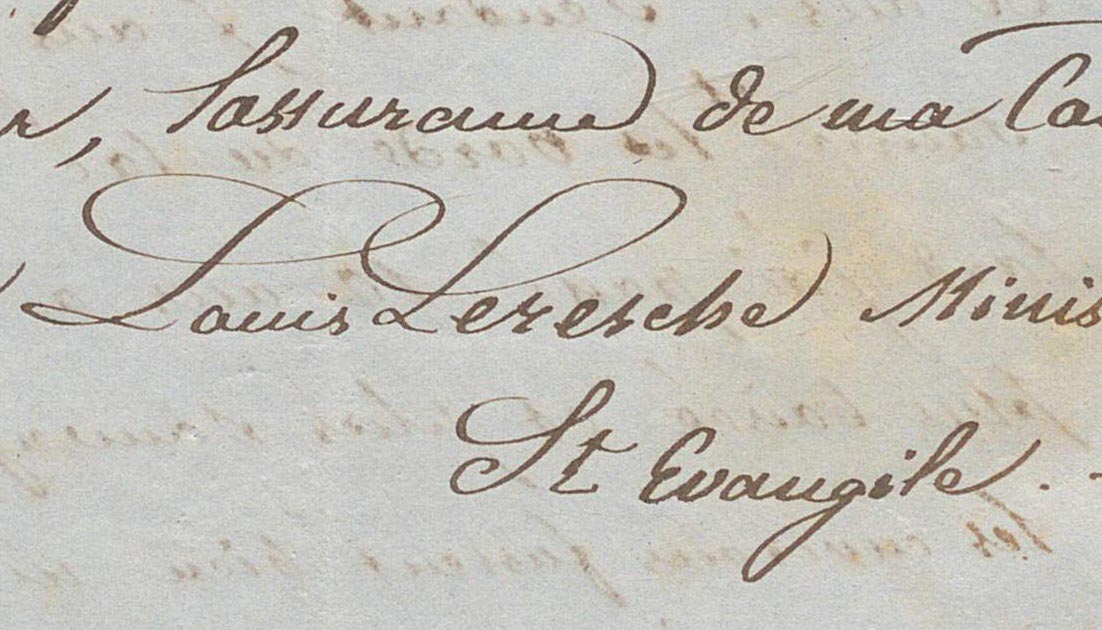 r, l'assurance de ma Co
Louis Leresche Minis
St Evangile. -